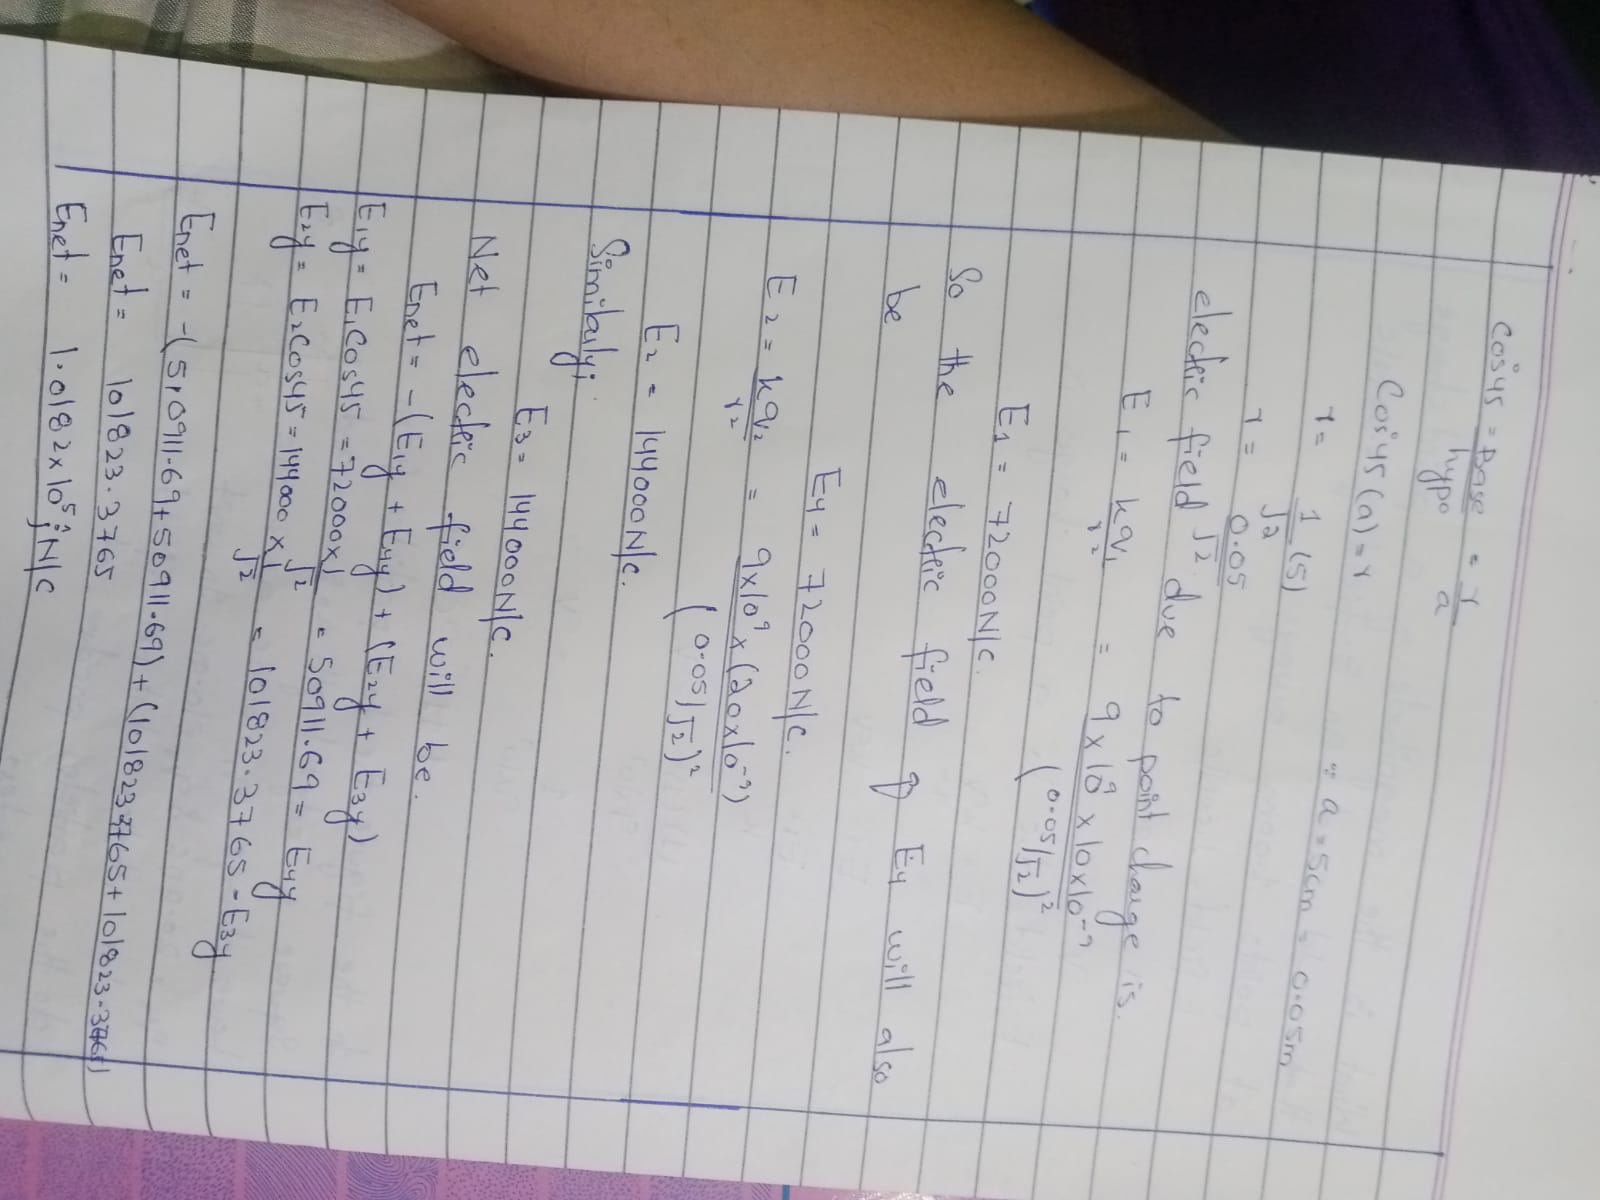 Cos45° = base/hypo = r/a
Cos45°(a) = r
r = 1/√2 (5) ∵ a = 5cm = 0.05m
r = 0.05/√2
electric field due to point charge is.
E1 = kq1/r² = 9x10⁹ x 10x10⁻⁹/(0.05/√2)²
E1 = 72000N/c.
So the electric field of E4 will also
be
E4 = 72000N/c.
E2 = kq2/r² = 9x10⁹ x (20x10⁻⁹)/(0.05/√2)²
E2 = 144000N/c.
Similarly;
E3 = 144000N/c.
Net electric field will be.
Enet = -(E1y + E4y) + (E2y + E3y)
E1y = E1Cos45 = 72000x1/√2 = 50911.69 = E4y
E2y = E2Cos45 = 144000 x 1/√2 = 101823.3765 = E3y
Enet = -(50911.69+50911.69)+(101823.3765+101823.3765)
Enet = 101823.3765
Enet = 1.0182x10⁵ ĵ N/c